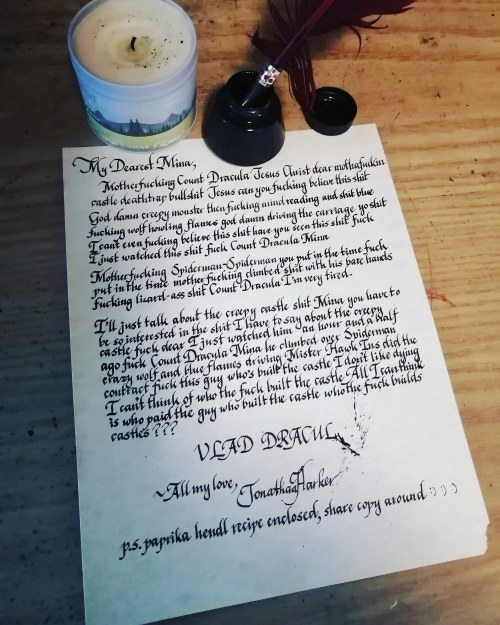 My Dearest Mina,
Motherfucking Count Dracula Jesus Christ dear mothafuckin
castle deathtrap bullshit Jesus can you fucking believe this shit
God damn creepy monster then fucking mind reading and shit blue
fucking wolf howling flames god damn driving the carriage yo shit
I can't even fucking believe this shit have you seen this shit fuck
I just watched this shit fuck Count Dracula Mina
Motherfucking Spiderman-Spiderman you put in the time fuck
put in the time motherfucking climbed shit with his bare hands
fucking lizard-ass shit Count Dracula I'm very tired.
I'll just talk about the creepy castle shit Mina you have to
be so interested in the shit I have to say about the creepy
castle fuck dear I just watched him an hour and a half
ago fuck Count Dracula Mina he climbed over Spiderman
crazy wolf and blue flames driving Mister Hawkins did the
contract fuck this guy who's built the castle I don't like dying
I can't think of who the fuck built the castle All I can think
is who paid the guy who built the castle who the fuck builds
castles???
VLAD DRACUL
~All my love, Jonathan Harker
p.s. paprika hendl recipe enclosed, share copy around :) ) )